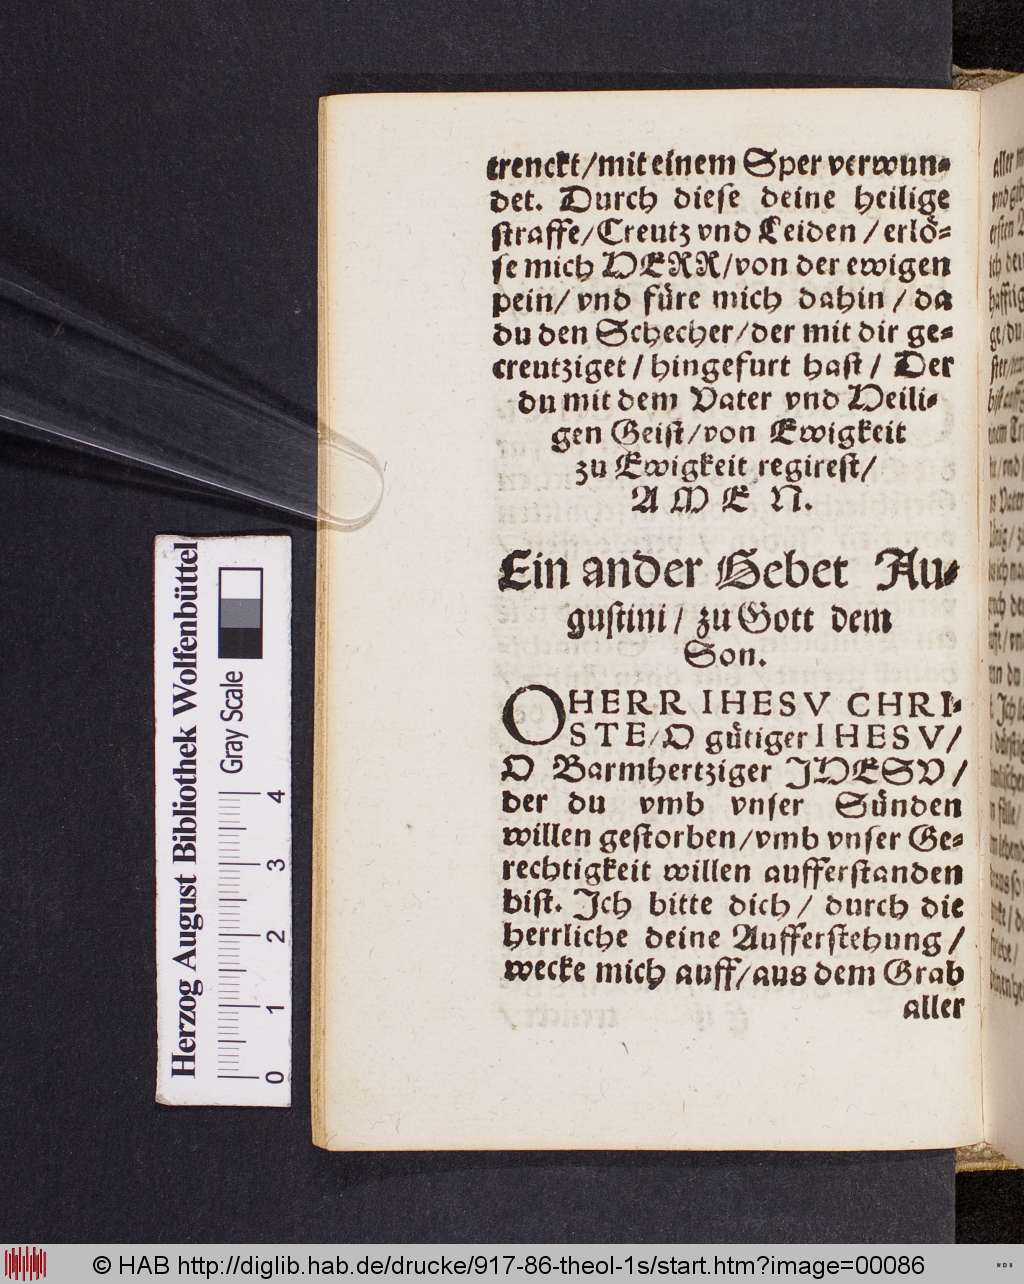 trenckt/mit einem Sper verwun-
det. Durch diese deine heilige
straffe/Creutz vnd Leiden/erlö-
se mich HERR/von der ewigen
pein/ vnd füre mich dahin/da
du den Schecher/der mit dir ge-
creutziget/hingefurt hast/ Der
du mit dem Vater vnd Heili-
gen Geist/von Ewigkeit
zu Ewigkeit regirest/
A M E N.
Ein ander Gebet Au-
gustini/ zu Gott dem
Son.
O HERR IHESV CHRI-
STE/O gütiger IHESV/
O Barmhertziger JHESV/
der du vmb vnser Sünden
willen gestorben/vmb vnser Ge-
rechtigkeit willen aufferstanden
bist. Ich bitte dich/ durch die
herrliche deine Aufferstehung/
wecke mich auff/aus dem Grab
aller
Herzog August Bibliothek Wolfenbüttel
Gray Scale
0 1 2 3 4
© HAB http://diglib.hab.de/drucke/917-86-theol-1s/start.htm?image=00086